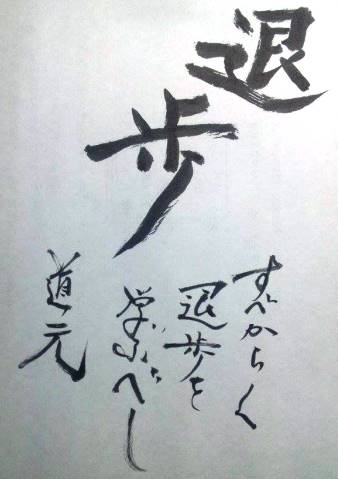 退歩
すべからく
退歩を
学ぶべし
道元